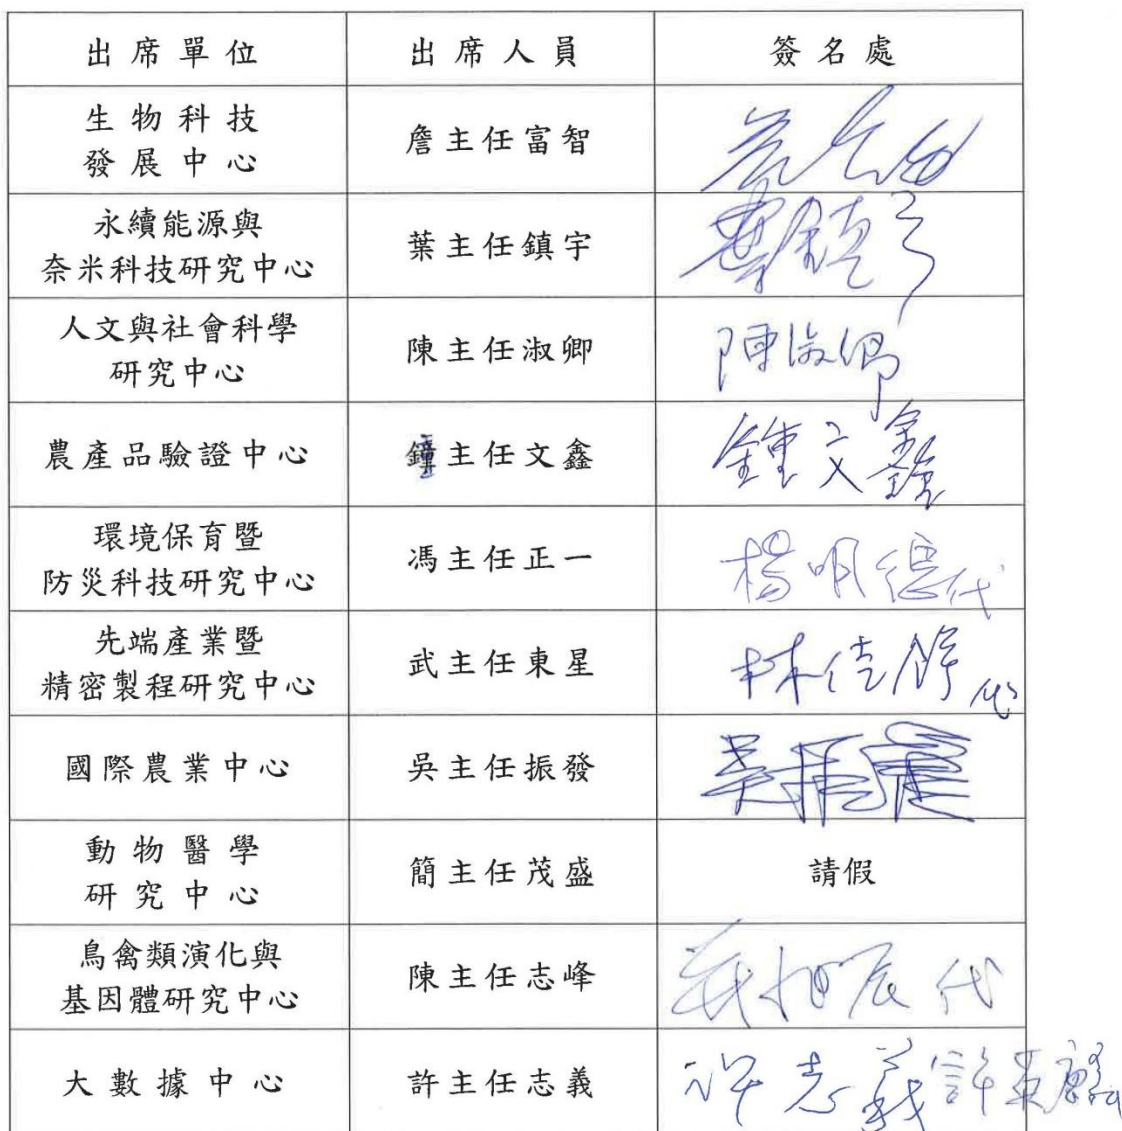 出席單位 出席人員 簽名處
生物科技
發展中心
詹主任富智
永續能源與
奈米科技研究中心
葉主任鎮宇
葉鎮宇
人文與社會科學
研究中心
陳主任淑卿
陳淑卿
農產品驗證中心 鍾主任文鑫 鍾文鑫
環境保育暨
防災科技研究中心
馮主任正一
楊明德代
先端產業暨
精密製程研究中心
武主任東星
代
國際農業中心 吳主任振發 吳振發
動物醫學
研究中心
簡主任茂盛
請假
鳥禽類演化與
基因體研究中心
陳主任志峰
代
大數據中心 許主任志義 許志義